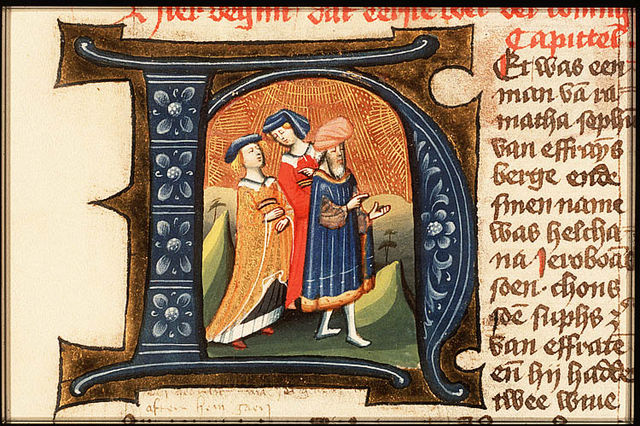 Hier begint dat eerste boec der coning
Capittel
Et was een
man vā ra
matha sophi
van effrayms
berge ende
sinen name
was helcha
na Jeroboā
soen · thous
soē suphs
van effrate
eñ hij hadde
twee wiue